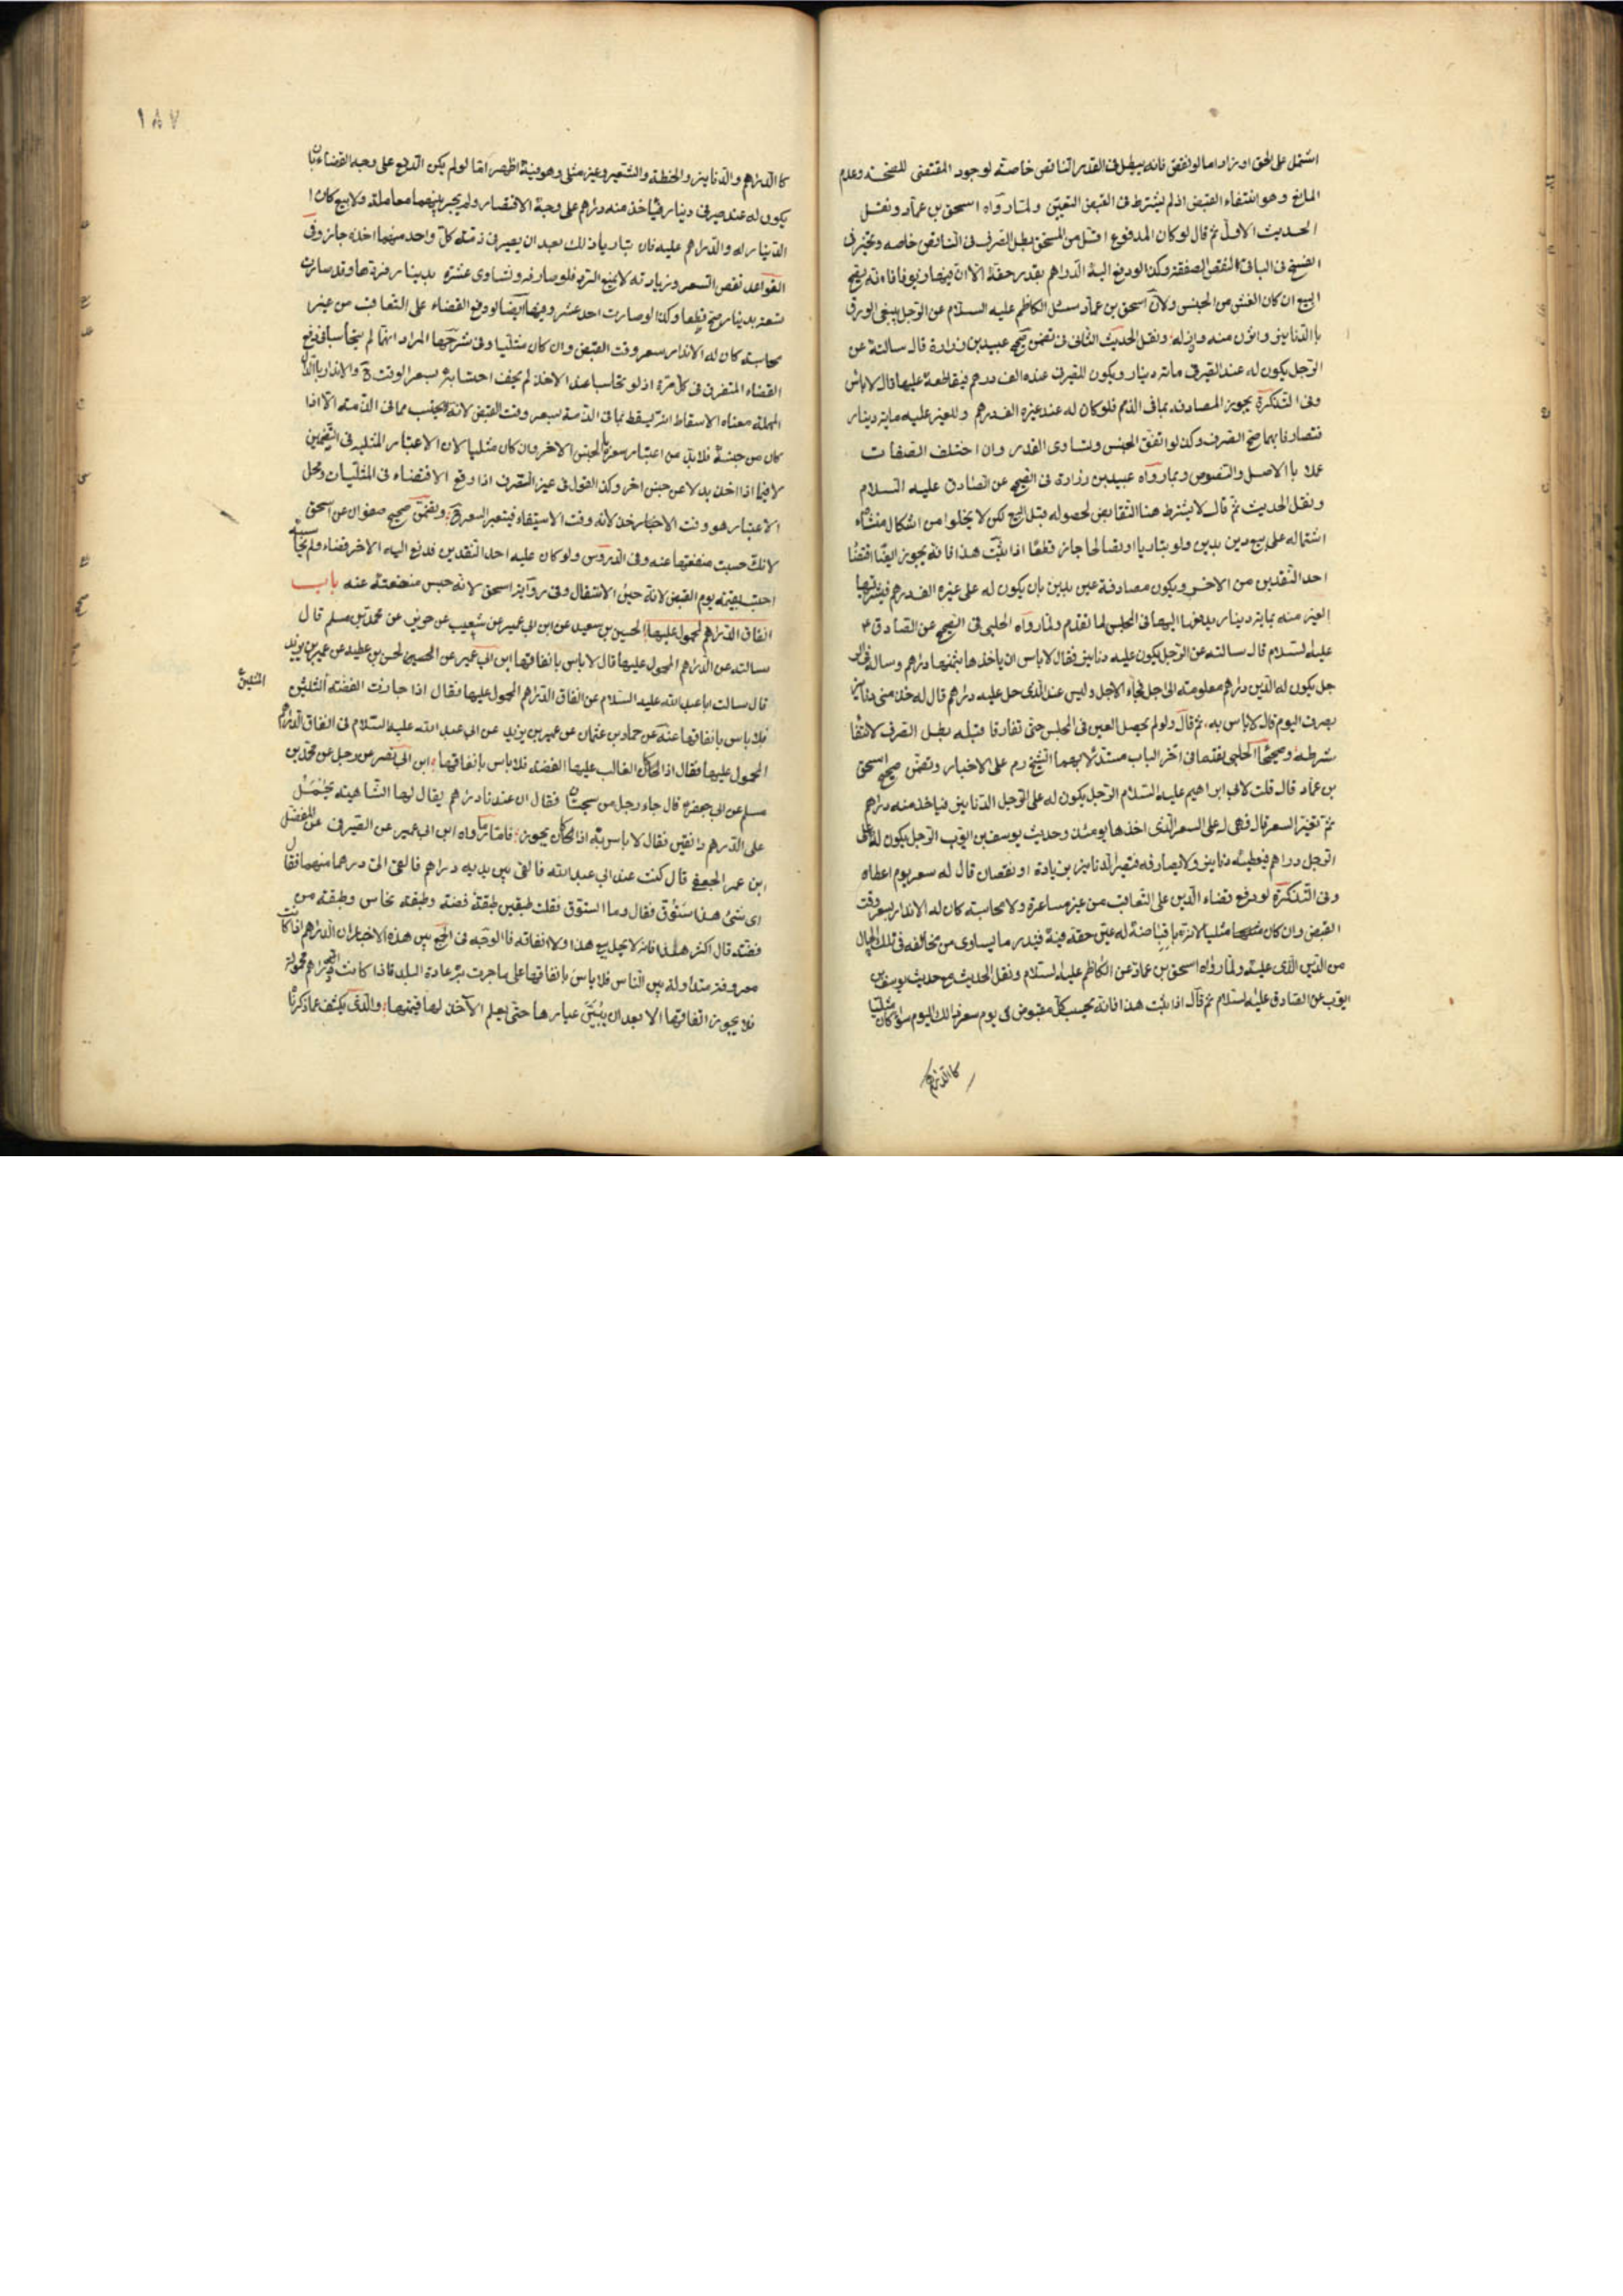 اشتمل على الحق او زاد اما لو نقص فانه يبطل فى القدر الناقص خاصة لوجود المقتضى للصحة وعدم
المانع وهو انتفاء القبض اذ لم يشترط فى القبض التعيين ولما رواه اسحق بن عمار ونقل
الحديث الاول ثم قال لو كان المدفوع اقل من المستحق بطل الصرف فى الناقص خاصه وتخير فى
الفسخ فى الباقى لتبعض الصفقة وكذا لو دفع اليه الدراهم بقدر حقه الا ان فيها زيوفا فانه يصح
البيع ان كان الغش من الجنس ولان اسحق بن عمار سئل الكاظم عليه السلام عن الرجل يبيعنى الورق
باالدنانير واتزن منه وازن له ونقل الحديث الثانى فى تضمن صحيح عبيد بن زرارة قال سالته عن
الرجل يكون له عند الصيرفى مائة دينار ويكون للصيرفى عنده الف درهم فيقاطعه عليها قال لا باس
وفى التذكرة يجوز المصادفه بما فى الذمم فلو كان له عند غيره الف درهم وللغير عليه مائة دينار
فتصارفا بهما صح الصرف وكذا لو اتفق الجنس وتساوى القدر وان اختلف الصفات
عملا باالاصل والنصوص وبما رواه عبيد بن زرارة فى الصحيح عن الصادق عليه السلام
ونقل الحديث ثم قال لا يشترط هنا التقابض لحصوله قبل البيع لكن لا يخلوا من اشكال منشاه
اشتماله على بيع دين بدين ولو تباريا او تصالحا جاز قطعا اذا ثبت هذا فانه يجوز ايضا اقتضا
احد النقدين من الاخر ويكون مصادفة عين بدين بان يكون له على غيره الف درهم فيشتريها
الغير منه بماية دينار يدفعها اليه فى المجلس لما تقدم ولما رواه الحلبى فى الصحيح عن الصادق ع
عليه السلام قال سالته عن الرجل يكون عليه دنانير فقال لا باس ان ياخذها بثمنها دراهم وساله فى الر
جل يكون له الدين دراهم معلومته الى اجل فجاء الاجل وليس عند الذى حل عليه دراهم قال له خذ منى دنانير
بصرف اليوم قال لا باس به ثم قال ولو لم يحصل العين فى المجلس حتى تفارقا قبله بطل الصرف لانتفا
شرطه وصحيحتا الحلبى بعضهما فى اخر الباب مستدلا بهما الشيخ ره على الاخبار وتضمن صحيح اسحق
بن عمار قال قلت لابى ابراهيم عليه السلام الرجل يكون له على الرجل الدنانير فياخذ منه دراهم
ثم تغير السعر قال فهى له على السعر الذى اخذها يومئذ وحديث يوسف بن ايوب الرجل يكون له على
الرجل دراهم فيعطيه دنانير ولا يصارفه فتصير الدنانير بزيادة او نقصان قال له سعر يوم اعطاه
وفى التذكرة لو دفع قضاء الدين على التعاقب من غير مساعرة ولا محاسبة كان له الاندار بسعر وقت
القبض وان كان مثليا لانه باقباضه له عين حقه فيه قدر ما يساوى من مخالفه فى تلك الحال
من الدين الذى عليه ولما رواه اسحق بن عمار عن الكاظم عليه السلام ونقل الحديث مع حديث يوسف بن
ايوب عن الصادق عليه السلام ثم قال اذا ثبت هذا فانه يحسب كل مقبوض فى يوم سعر ذلك اليوم سواء كان مثليا
كاالدراهم
١٨٧
كاالدراهم والدنانير والحنطة والشعير وغير مثلى وهو فيه اظهر امّا لو لم يكن الدفع على وجه القضاء بان
يكون له عند صيرفى دينار فياخذ منه دراهم على وجه الاقتصار ولم يجر بينهما معاملة ولا بيع كان ا
الدينار له والدراهم عليه فان تباريا ذلك بعد ان يصير فى ذمته كل واحد منهما اخذه جاز وفى
القواعد نقص السعر وزيادته لا يمنع الرد فلو صارفه وتساوى عشرة بدينار فردها وقد صارت
تسعة بدينار صح قطعا وكذا لو صارت احد عشر وفيها ايضا لو دفع القضاء على التعاقب من غير
محاسبة كان له الاندار بسعر وقت القبض وان كان مثليا وفى شرحها المراد انهما لم يتحاسبا فى دفع
القضاء المتفرق فى كل مرة اذ لو تحاسبا عند الاخذ لم يخف احتسابه بسعر الوقت ح والاندار باالدال
المهملة معناه الاسقاط اى يسقط بما فى الذمة بسعر وقت القبض لانه يحتسب مما فى الذمة الا اذا
كان من جنسه فلابد من اعتبار سعر بالجنس الاخر وان كان مثليا لان الاعتبار المثليه فى القيمين
لا فيما اذا اخذ بدلا عن جنس اخر وكذا القول فى غير الصرف اذا وقع الاقتضاء فى المثليات ومحل
الاعتبار هو وقت الاخبار خذ لانه وقت الاستيفاء فيتعبر السعر ق وتضمن صحيح صفوان عن اسحق
لانك حبست منفعتها عنه وفى الدروس ولو كان عليه احد النقدين فدفع اليه الاخر قضاء ولم يحاسبه
احتسب بقيمته يوم القبض لانه حين الانتقال وفى رواية اسحق لانه حبس منفعته عنه باب
انفاق الدراهم المحمول عليها الحسين بن سعيد عن ابن ابى عمير عن شعيب عن حريز عن محمد بن مسلم قال
سالته عن الدراهم المحمول عليها قال لا باس بانفاقها ابن ابى عمير عن الحسن بن عطيه عن عمير بن يزيد
قال سالت ابا عبد الله عليه السلام عن انفاق الدراهم المحمول عليها فقال اذا جازت الفضته الثلثين
الثلثين
فلا باس بانفاقها عنه عن حماد بن عثمان عن عمير بن يزيد عن ابى عبد الله عليه السلام فى انفاق الدراهم
المحمول عليها فقال اذا كان الغالب عليها الفضه فلا باس بانفاقها ابن ابى نصر عن رجل عن محمد بن
مسلم عن ابى جعفر ع قال جاء رجل من سجستان فقال ان عندنا دراهم يقال لها الشاهيته تحمل
على الدرهم دانقين فقال لا باس به اذا كان يجوز فامّا ما رواه ابن ابى عمير عن الصيرفى عن المفضل
ابن عمر الجعفى قال كنت عند ابى عبد الله فالقى بين يديه دراهم فالقى الىّ درهما منها فقال
اى شئ هذا ستوق فقال وما الستوق فقلت طبقين طبقة فضه وطبقة نحاس وطبقة من
فضه قال اكسرها هذا فانه لا يحل بيع هذا ولا انفاقه فاالوجه فى الجمع بين هذه الاخبار ان الدراهم اذا كانت
معروفة متداولة بين الناس فلا باس بانفاقها على ما جرت به عادة البلد فاذا كانت دراهم مجهولة
فلا يجوز انفاقها الا بعد ان يتبين عيارها حتى يعلم الآخذ لها قيمتها والذى يكشف عما ذكرناه